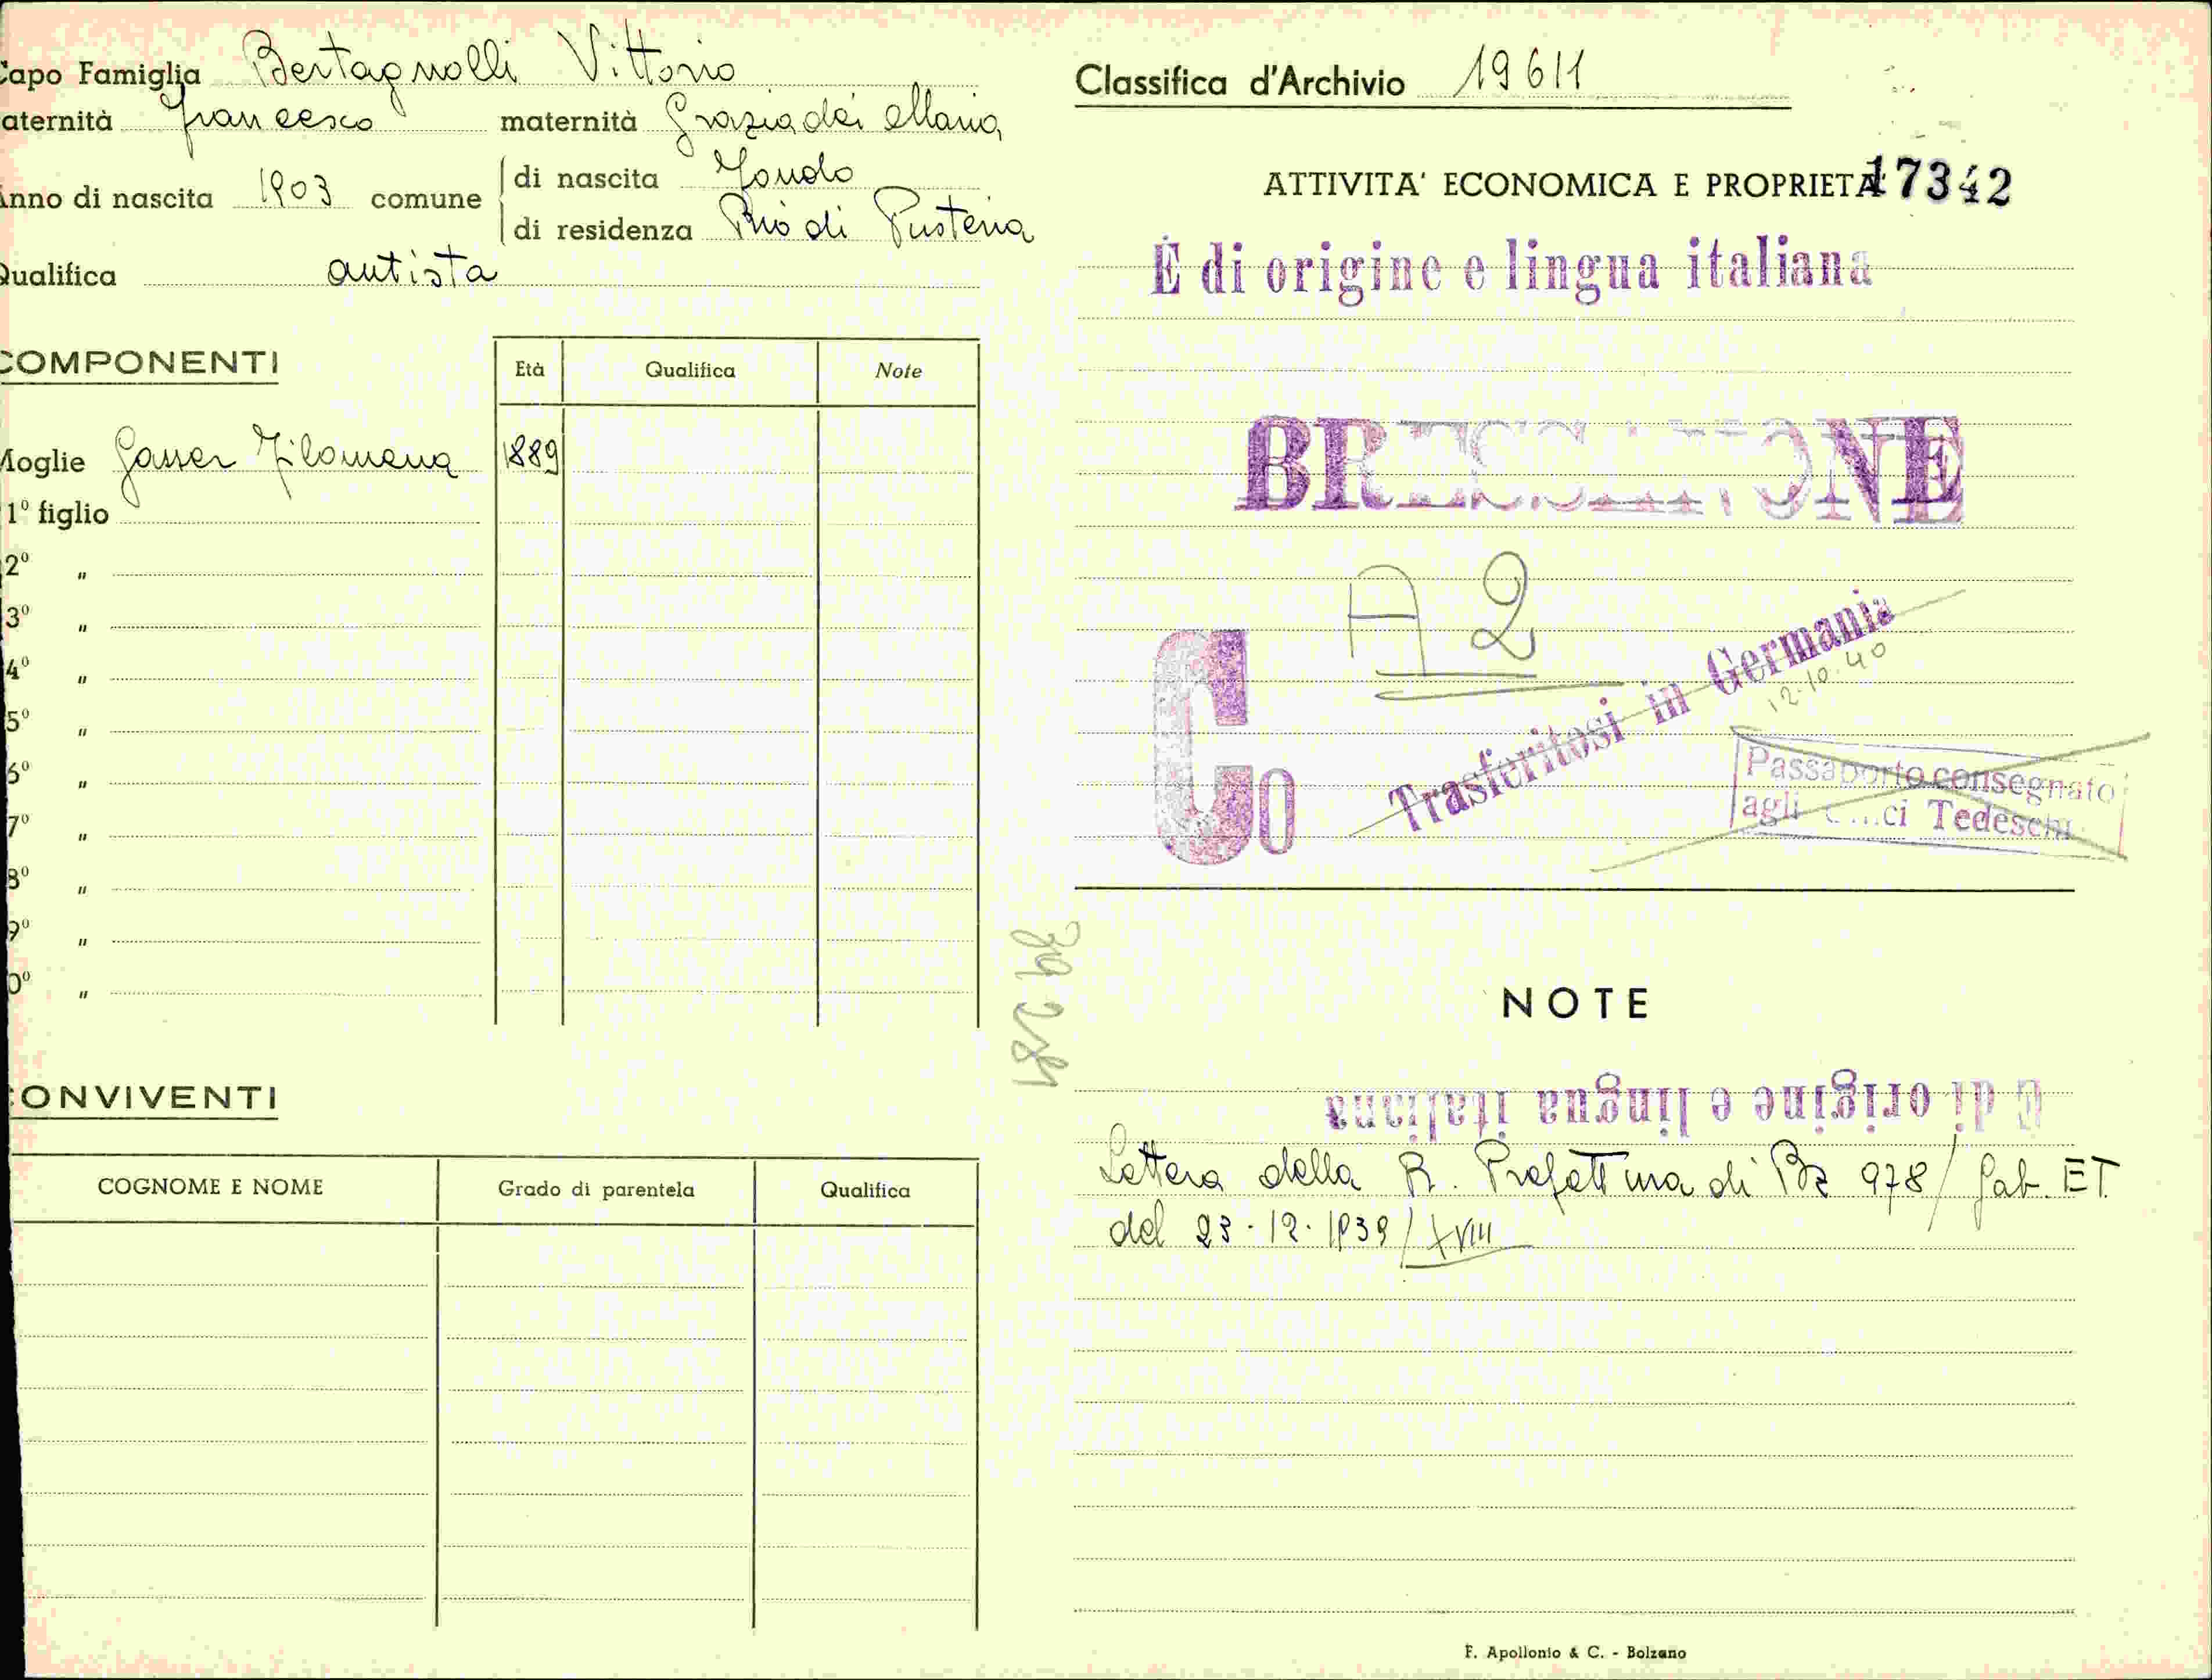 Capo Famiglia Bertagnolli Vittorio
aternità Francesco maternità Graziadei Maria
Anno di nascita 1903 comune di nascita Fondo
di residenza Rio di Pusteria
Qualifica autista
COMPONENTI
Età Qualifica Note
Moglie Gasser Filomena 1889
1º figlio
2º "
3º "
4º "
5º "
6º "
7º "
8º "
9º "
0º "
39281
CONVIVENTI
COGNOME E NOME Grado di parentela Qualifica
Classifica d'Archivio 19611
ATTIVITA' ECONOMICA E PROPRIETA' 17342
È di origine e lingua italiana
BRESSANONE
A 2
Co
Trasferitosi in Germania
12.10.40
Passaporto consegnato
agli ci Tedeschi
NOTE
E di origine e lingua italiana
Lettera della R. Prefettura di Bz 978/Gab. ET.
del 23.12.1939/XVIII
F. Apollonio & C. - Bolzano